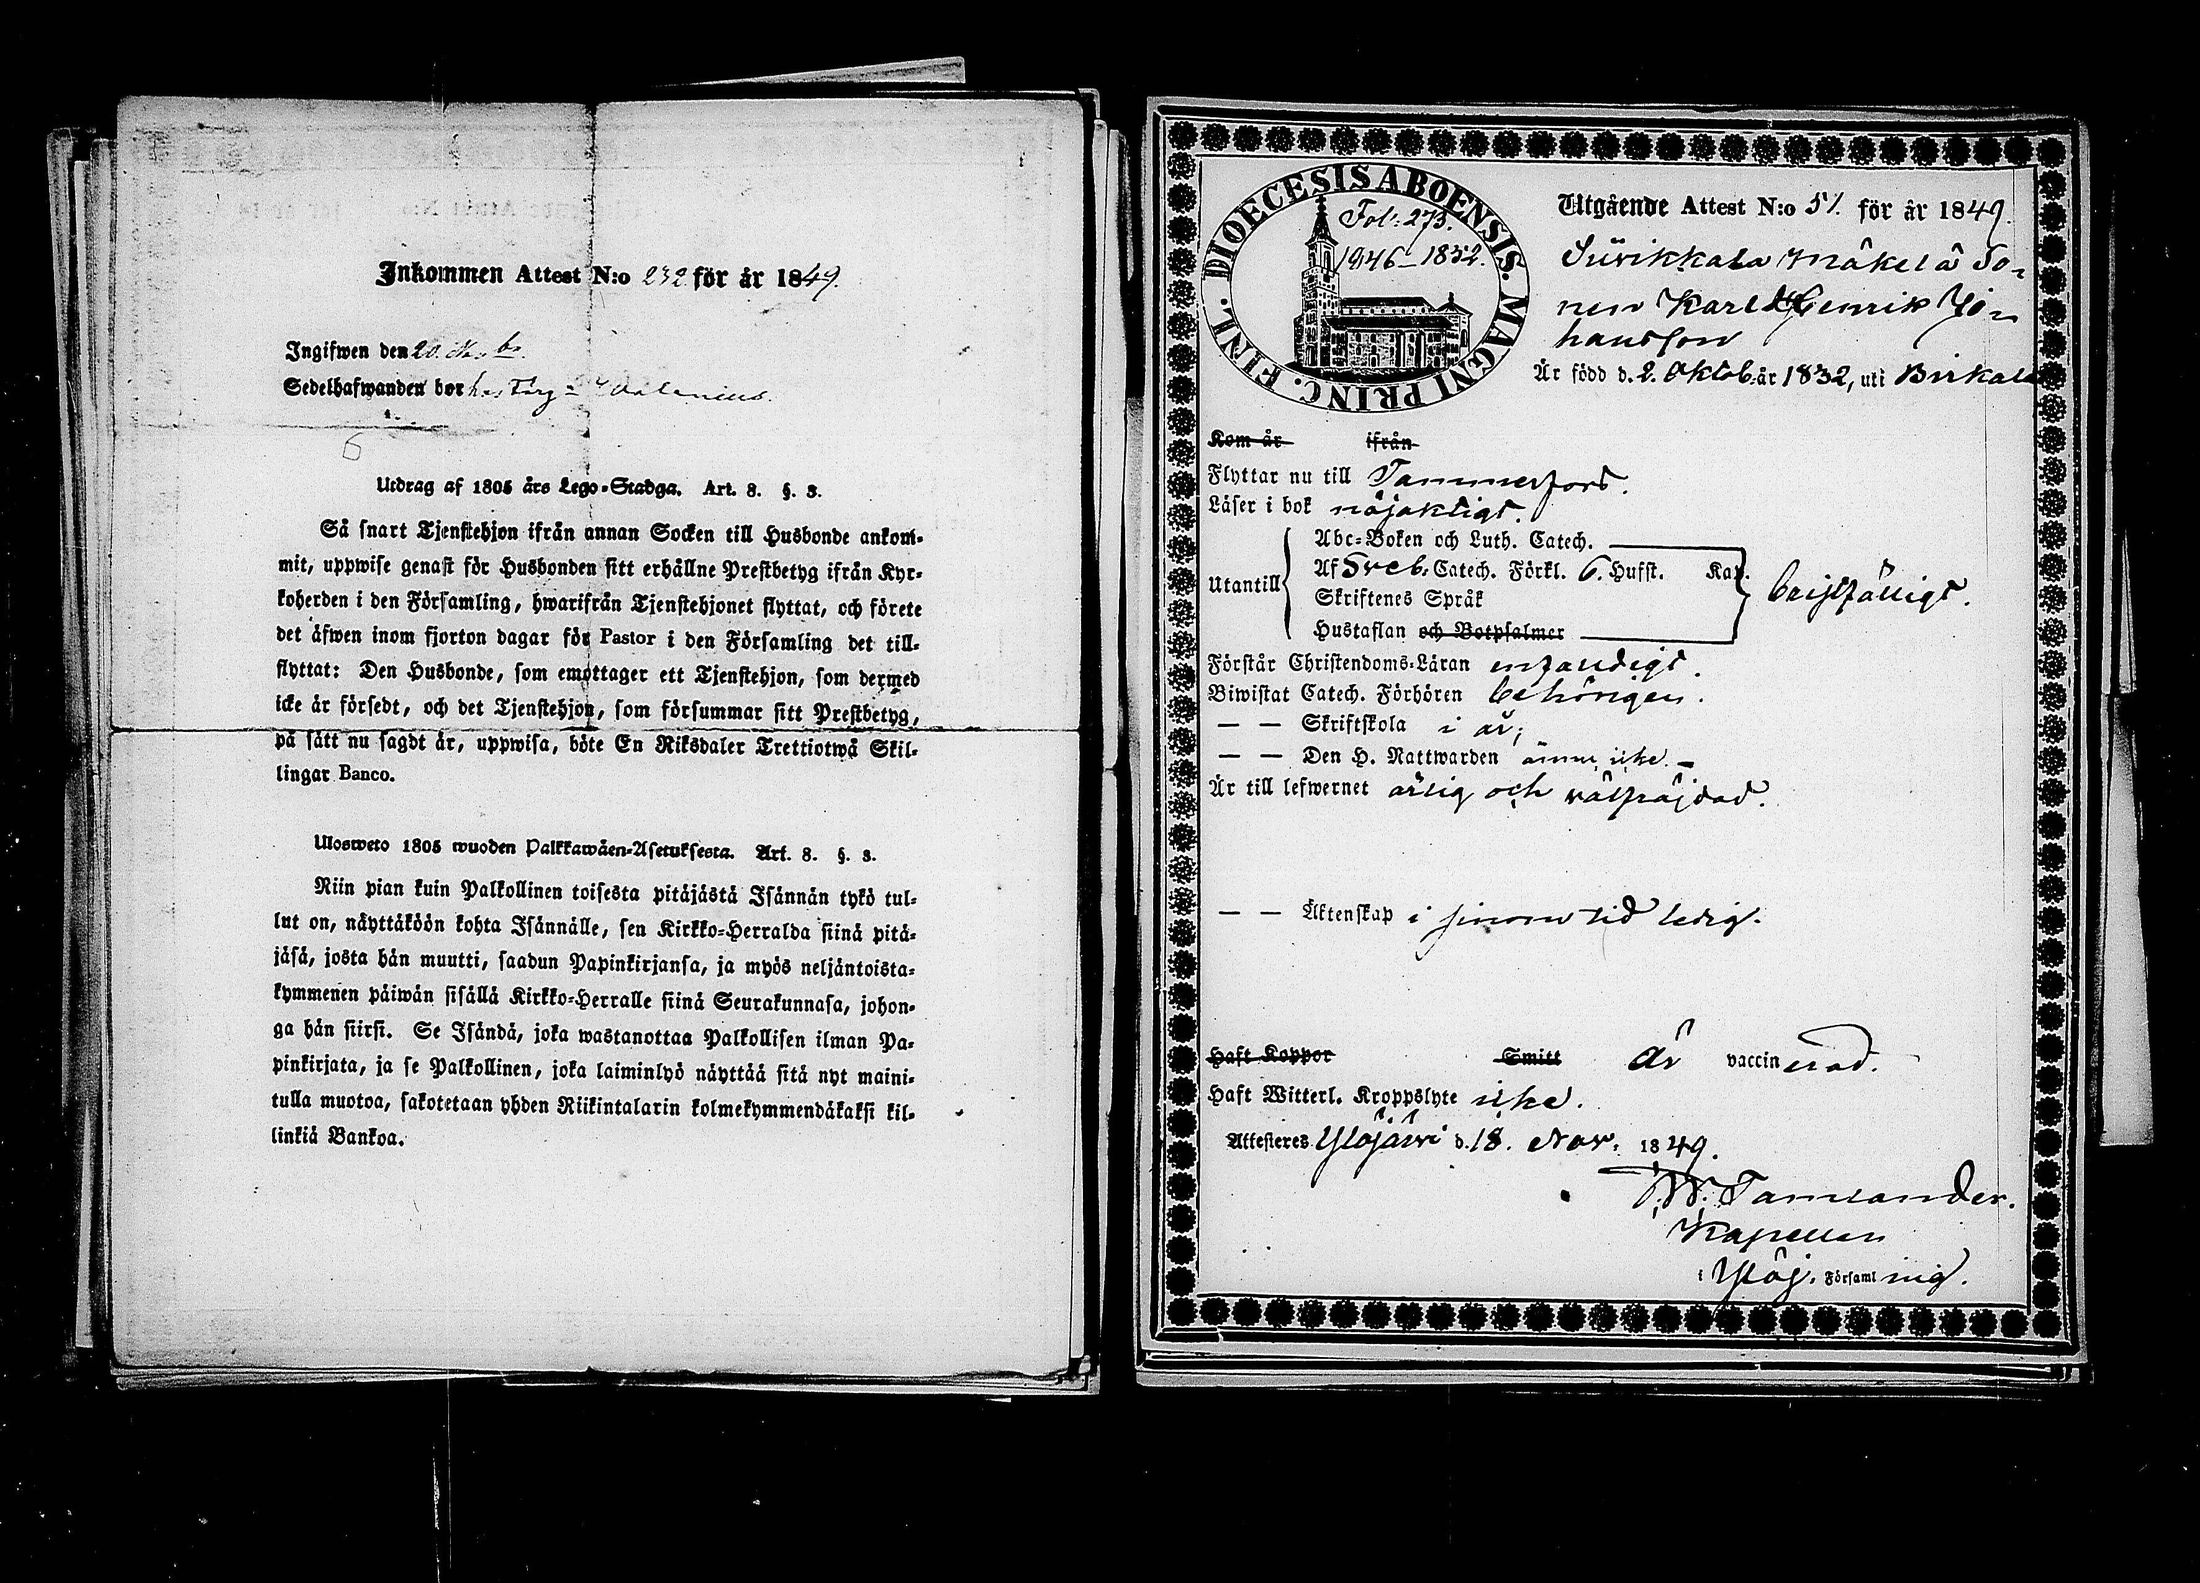 Inkommen Attest N:o 232 för år 1849.
Ingifwen den 20.
Sedelhafwanden bor hos
Utdrag af 1805 års Lego-Stadga. Art. 8. §. 3.
Så snart Tjenstehjon ifrån annan Socken till Husbonde ankom-
mit, uppwise genast för Husbonden sitt erhållne Prestbetyg ifrån Kyr-
koherden i den Församling, hwarifrån Tjenstehjonet flyttat, och förete
det äfwen inom fjorton dagar för Pastor i den Församling det till-
flyttat: Den Husbonde, som emottager ett Tjenstehjon, som dermed
icke är försedt, och det Tjenstehjon, som försummar sitt Prestbetyg,
på sätt nu sagdt är, uppwisa, böte En Riksdaler Trettiotwå Skil-
lingar Banco.
Ulosweto 1805 wuoden Palkkawäen-Asetuksesta. Art. 8. §. 3.
Niin pian kuin Palkollinen toisesta pitäjästä Isännän tykö tul-
lut on, näyttäköön kohta Isännälle, sen Kirkko-Herralda siinä pitä-
jäsä, josta hän muutti, saadun Papinkirjansa, ja myös neljäntoista-
kymmenen päiwän sisällä Kirkko-Herralle siinä Seurakunnasa, johon-
ga hän siirsi. Se Isändä, joka wastanottaa Palkollisen ilman Pa-
pinkirjata, ja se Palkollinen, joka laiminlyö näyttää sitä nyt maini-
tulla muotoa, sakotetaan yhden Riikintalarin kolmekymmendäkaksi kil-
linkiä Bankoa.
DIOECESIS ABOENSIS. MAGNI PRINC. FINL.
Fol: 273.
1846-1852.
Utgående Attest N:o 51. för år 1849.
Siivikkala Mäkelä So-
nen Karl Henrik Jo-
hansson
Är född d. 2. Oktob. år 1832, uti Birkala
Kom år ifrån
Flyttar nu till Tammerfors.
Läser i bok nöjaktigt.
Utantill
Abc-Boken och Luth. Catech.
Af Sveb. Catech. Förkl. 6. Hufst. Kap.
Skriftenes Språk
Hustaflan och Botpsalmer
bristfälligt.
Förstår Christendoms-Läran enfaldigt.
Biwistat Catech. Förhören behörigen.
— — Skriftskola i år;
— — Den H. Nattwarden ännu icke. —
Är till lefwernet ärlig och välfräjdad.
— — Äktenskap i sinom tid ledig.
Haft Koppor Smitt Är vaccinerad.
Haft Witterl. Kroppslyte icke.
Attesteres Ylöjärvi d. 18. Nov. 1849.
Tamlander.
Kapellan
i Ylöj. Församling.